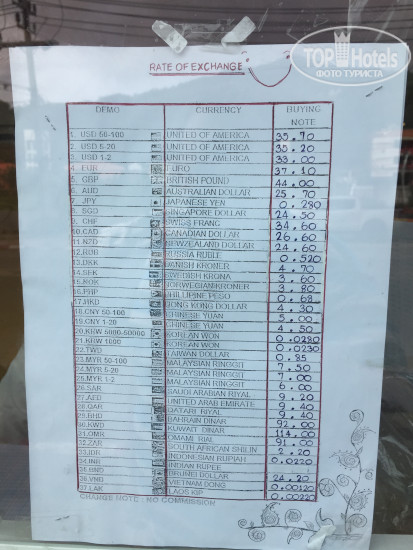 TOPHotels
ФОТО ТУРИСТА
RATE OF EXCHANGE
DEMO CURRENCY BUYING NOTE
1. USD 50-100 UNITED OF AMERICA 35.70
2. USD 5-20 UNITED OF AMERICA 35.20
3. USD 1-2 UNITED OF AMERICA 33.00
4. EUR EURO 37.10
5. GBP BRITISH POUND 44.00
6. AUD AUSTRALIAN DOLLAR 25.70
7. JPY JAPANESE YEN 0.280
8. SGD SINGAPORE DOLLAR 24.50
9. CHF SWISS FRANC 34.60
10.CAD CANADIAN DOLLAR 26.60
11. NZD NEWZEALAND DOLLAR 24.60
12.RUB RUSSIA RUBLE 0.520
13.DKK DANISH KRONER 4.70
14.SEK SWEDISH KRONA 3.60
15.NOK NORWEGIANKRONER 3.80
16.PHP PHILLIPINE PESO 0.62
17.HKD HONG KONG DOLLAR 4.30
18.CNY 50-100 CHINESE YUAN 5.00
19.CNY 1-20 CHINESE YUAN 4.50
20.KRW 5000-50000 KOREAN WON 0.0280
21.KRW 1000 KOREAN WON 0.0230
22.TWD TAIWAN DOLLAR 0.85
23.MYR 50-100 MALAYSIAN RINGGIT 7.50
24.MYR 5-20 MALAYSIAN RINGGIT 7.00
25.MYR 1-2 MALAYSIAN RINGGIT 6.00
26.SAR SAUDI ARABIAN RIYAL 9.20
27.AED UNITED ARAB EMIRATE 9.40
28.QAR QATARI RIYAL 9.40
29.BHD BAHRAIN DINAR 92.00
30.KWD KUWAIT DINAR 114.00
31.OMR OMANI RIAL 91.00
32.ZAR SOUTH AFRICAN SHILIN 2.20
33.IDR INDONESIAN RUPIAH 0.0220
34.INR INDIAN RUPEE
35.BND BRUNEI DOLLAR 24.20
36.VND VIETNAM DONG 0.00120
37.LAK LAOS KIP 0.00220
CHANGE NOTE : NO COMMISSION